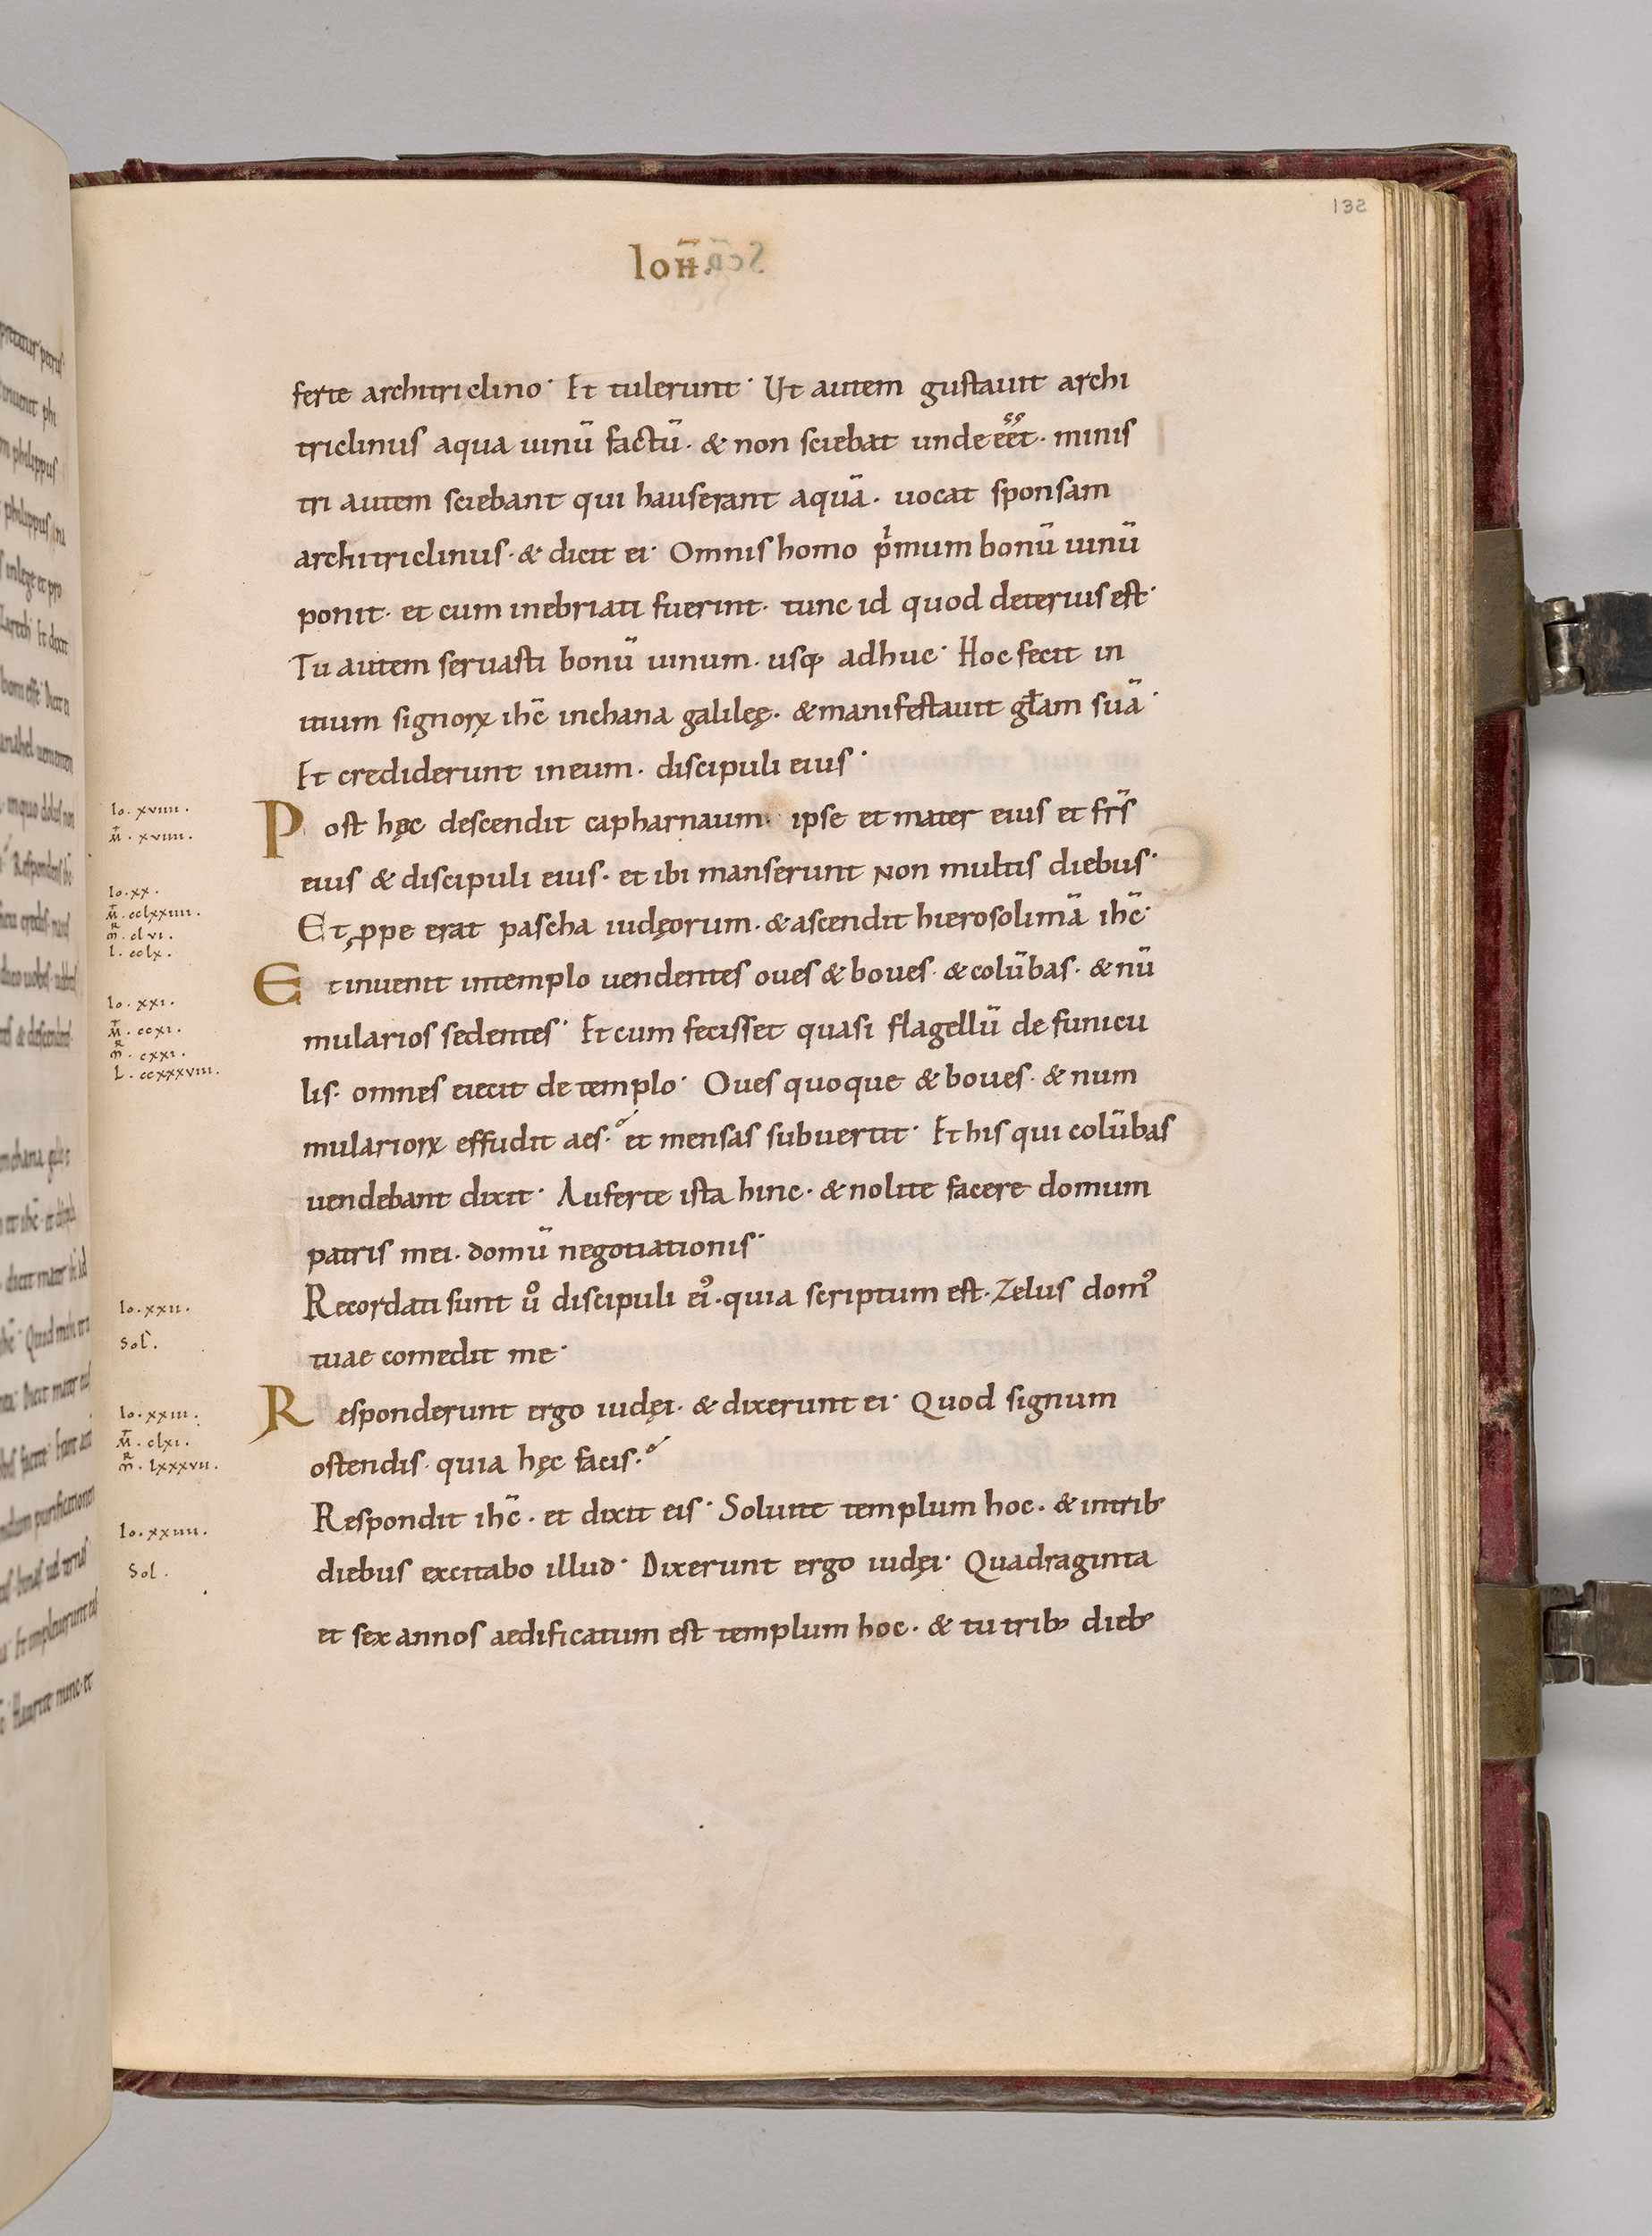 132
Ioħ.
ferte architriclino· Et tulerunt· Ut autem gustauit archi
triclinus aqua uinū factū· & non sciebat unde eēt· minis
tri autem sciebant qui hauserant aquā· uocat sponsam
architriclinus· & dicit ei· Omnis homo pͥmum bonū uinū
ponit· et cum inebriati fuerint· tunc id quod deterius est·
Tu autem seruasti bonū uinum· usq; adhuc· Hoc fecit in
itium signoꝝ ihc̄ inchana galileę· & manifestauit gɫam suā·
Et crediderunt in eum· discipuli eius·
Post hęc descendit capharnaum· ipse et mater eius et fr̄s
eius & discipuli eius· et ibi manserunt non multis diebus·
Et ꝓpe erat pascha iudęorum· & ascendit hierosolimā ihc̄·
Et inuenit intemplo uendentes oues & boues· & colūbas· & nū
mularios sedentes· Et cum fecisset quasi flagellū de funicu
lis· omnes eiecit de templo· Oues quoque & boues· & num
mularioꝝ effudit aes· et mensas subuertit· Et his qui colūbas
uendebant dixit· Auferte ista hinc· & nolite facere domum
patris mei· domū negotiationis·
Recordati sunt uͦ discipuli ei᾽· quia scriptum est· Zelus dom᾽
tuae comedit me·
Responderunt ergo iudęi· & dixerunt ei· Quod signum
ostendis· quia hęc facis·
Respondit ihc̄· et dixit eis· Soluite templum hoc· & intrib;
diebus excitabo illud· Dixerunt ergo iudęi· Quadraginta
et sex annos aedificatum est templum hoc· & tu trib; dieb;
Io· xviiii·
M̄· xviiii·
Io· xx·
M̄· cclxxiiii·
m̄ᴿ· clvi·
L· cclx·
Io· xxi·
M̄· ccxi·
m̄ᴿ· cxxi·
L· ccxxxviii·
Io· xxii·
Sol·
Io· xxiii·
M̄· clxi·
m̄ᴿ· lxxxvii·
Io· xxiiii·
Sol·